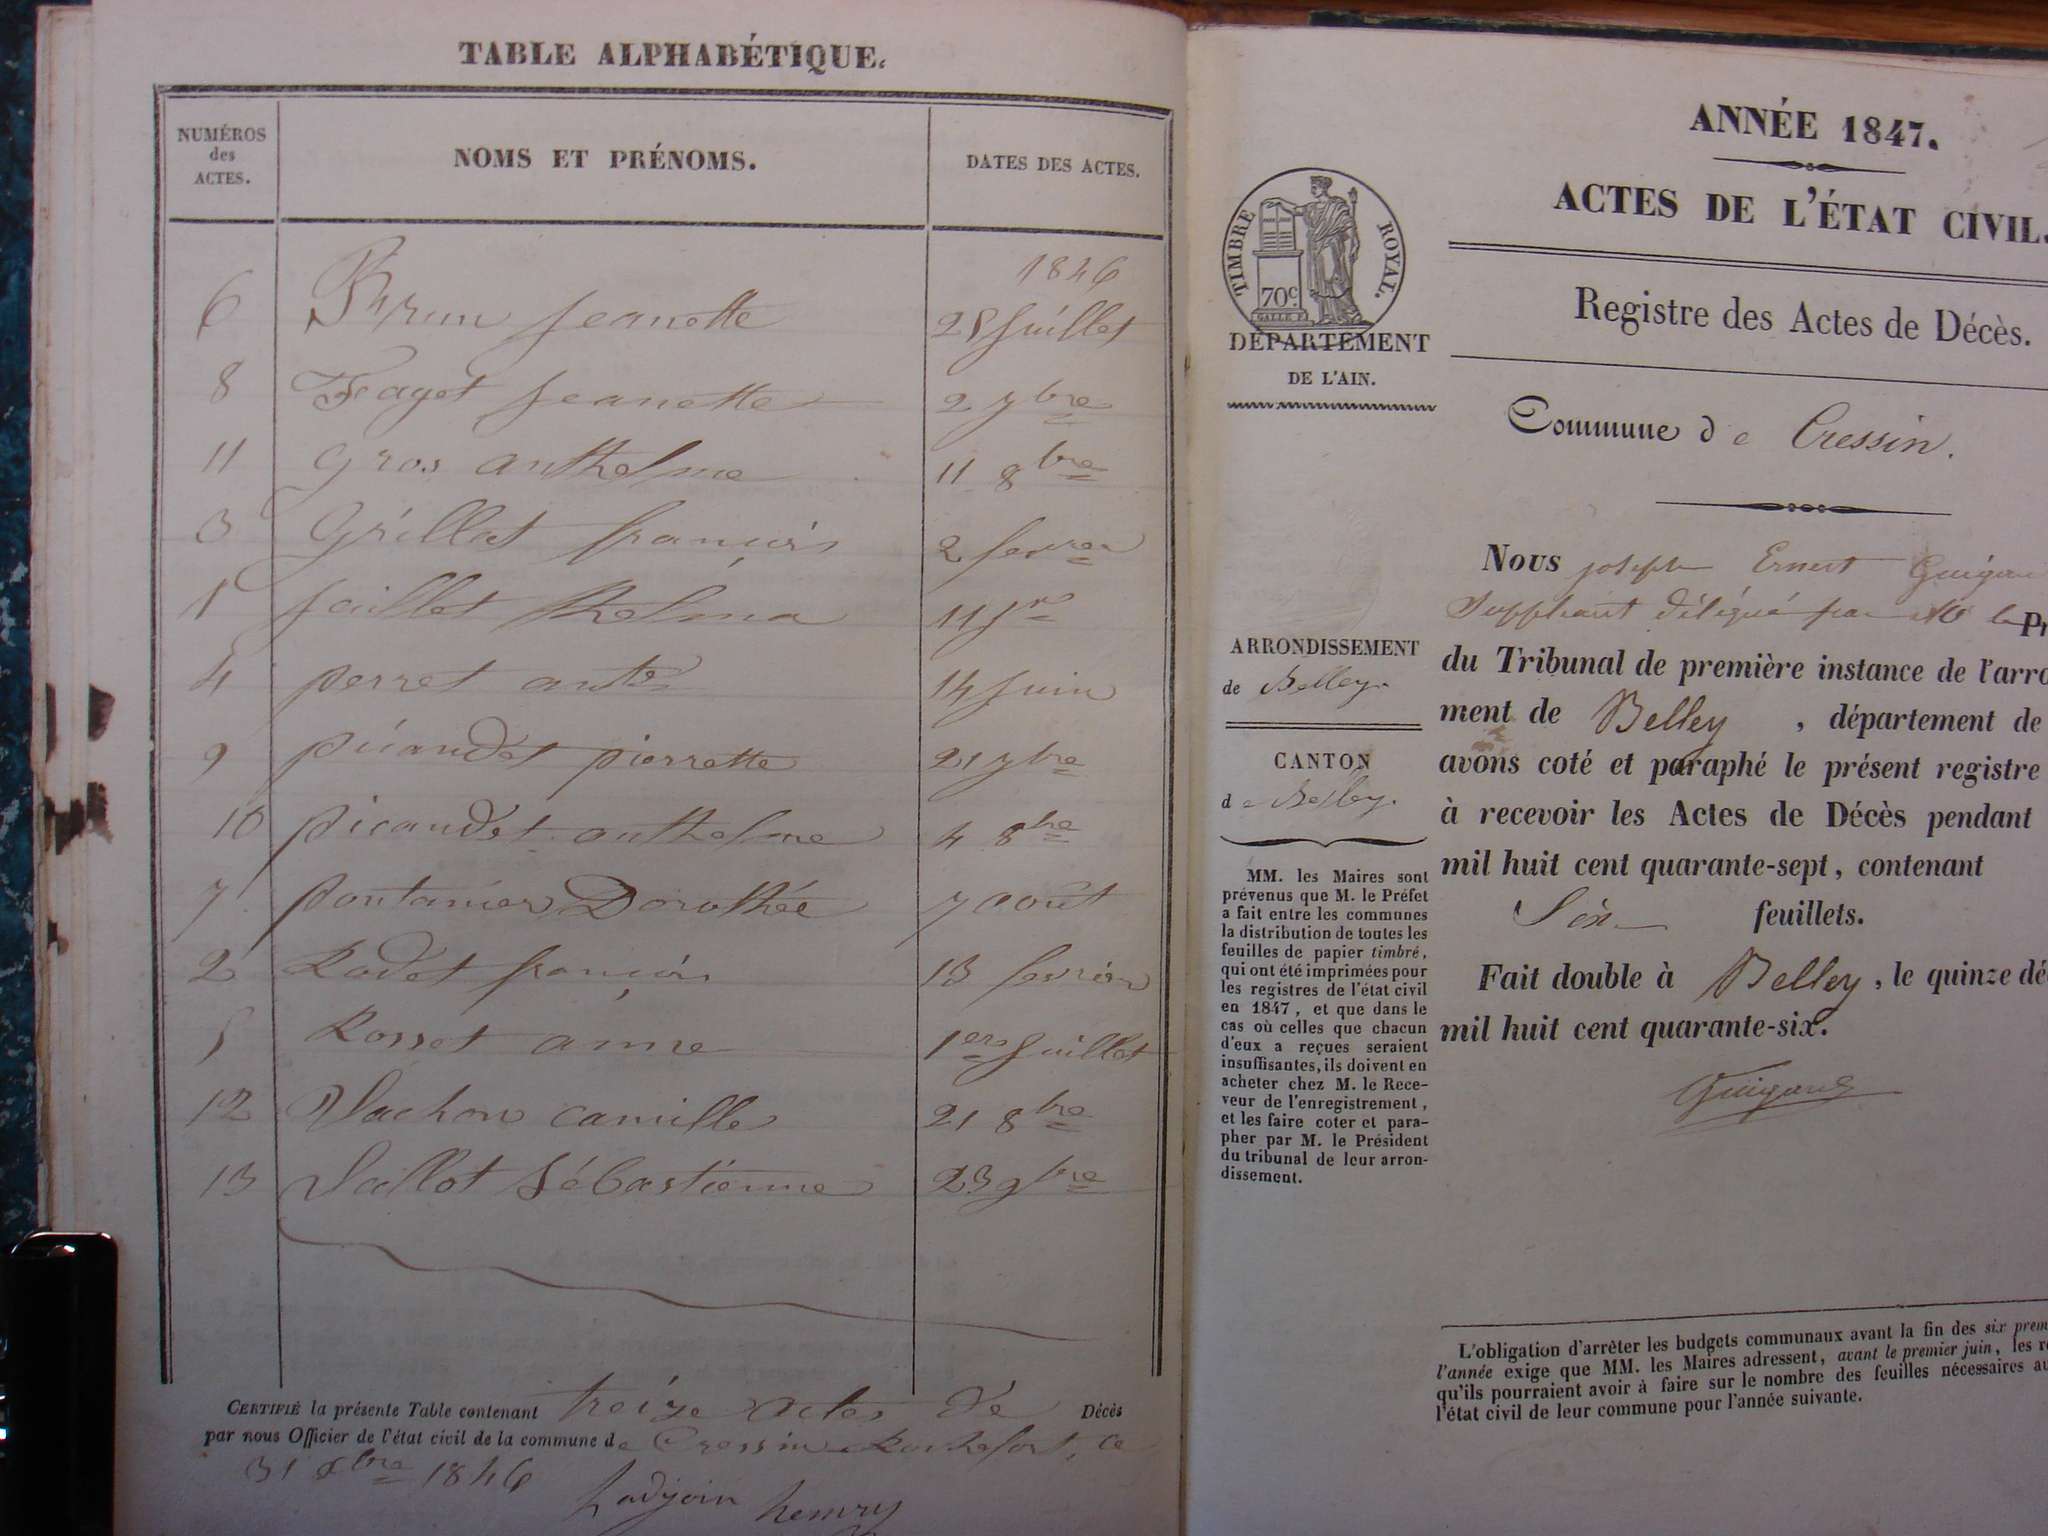 TABLE ALPHABÉTIQUE.
NUMÉROS
des
ACTES.
NOMS ET PRÉNOMS.
DATES DES ACTES.
1846
6 Brun jeanette 28 juillet
8 Feaget jeanette 2 7bre
11 gros anthelme 11 8bre
3 Grillet françois 2 fevrier
1 jaillet thelma 11 jer
4 perret ante 14 juin
9 picandet pierrette 21 7bre
10 picandet anthelme 4 8bre
7 pontanier Dorothée 7 août
2 Radet françois 13 fevrier
5 Rosset anne 1er juillet
12 Vachon camille 21 8bre
13 Vallot Sébastienne 23 9bre
CERTIFIÉ la présente Table contenant treize actes de Décès
par nous Officier de l'état civil de la commune de Cressin Rochefort, ce
31 xbre 1846
L'adjoin henry
ANNÉE 1847.
ACTES DE L'ÉTAT CIVIL.
TIMBRE ROYAL.
70c.
DÉPARTEMENT
DE L'AIN.
Registre des Actes de Décès.
Commune de Cressin.
ARRONDISSEMENT
de Belley.
CANTON
de Belley.
MM. les Maires sont
prévenus que M. le Préfet
a fait entre les communes
la distribution de toutes les
feuilles de papier timbré,
qui ont été imprimées pour
les registres de l'état civil
en 1847, et que dans le
cas où celles que chacun
d'eux a reçues seraient
insuffisantes, ils doivent en
acheter chez M. le Rece-
veur de l'enregistrement,
et les faire coter et para-
pher par M. le Président
du tribunal de leur arron-
dissement.
Nous joseph Ernest Guigou
Suppléant délégué par Mr le Pr
du Tribunal de première instance de l'arro
ment de Belley, département de
avons coté et paraphé le présent registre
à recevoir les Actes de Décès pendant
mil huit cent quarante-sept, contenant
Six feuillets.
Fait double à Belley, le quinze dé
mil huit cent quarante-six.
L'obligation d'arrêter les budgets communaux avant la fin des six prem
l'année exige que MM. les Maires adressent, avant le premier juin, les r
qu'ils pourraient avoir à faire sur le nombre des feuilles nécessaires au
l'état civil de leur commune pour l'année suivante.